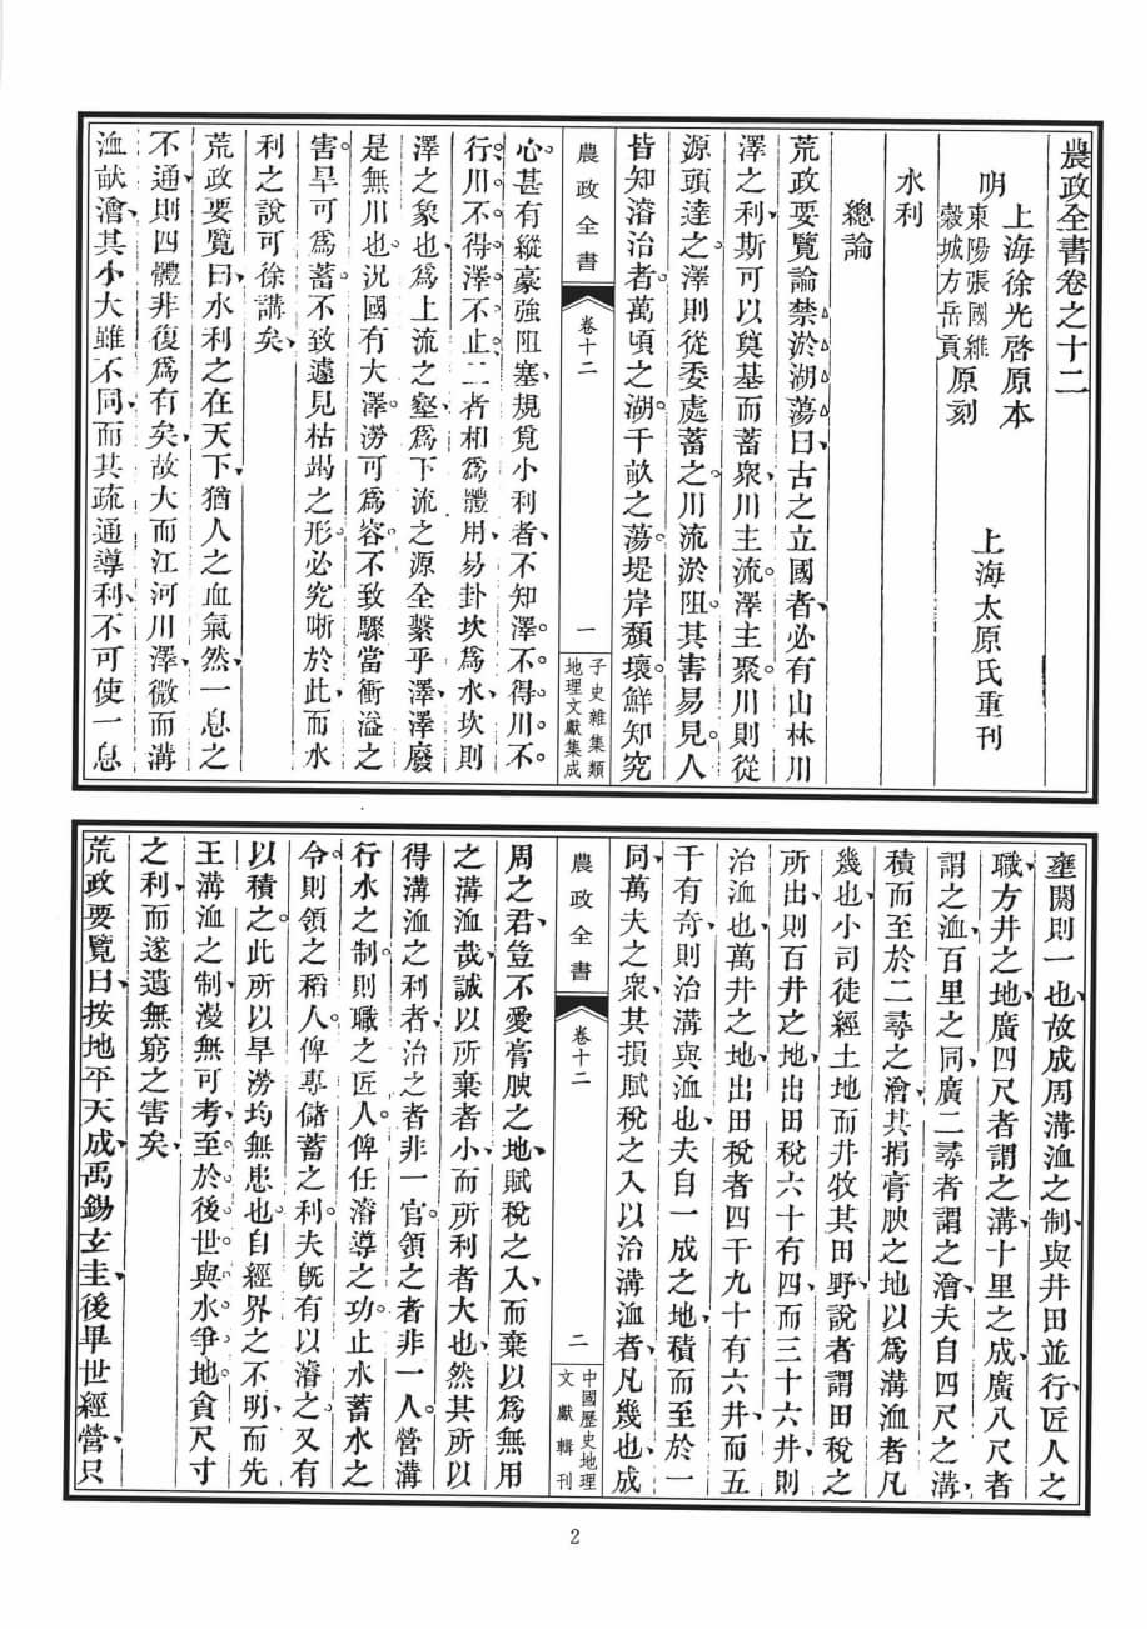 農政全書卷之十二
明
上海徐光啓原本
東陽張國維
穀城方岳貢
原刻
上海太原氏重刊
水利
總論
荒政要覽論禁淤湖蕩曰古之立國者必有山林川
澤之利斯可以奠基而蓄衆川主流澤主聚川則從
源頭達之澤則從委處蓄之川流淤阻其害易見人
皆知濬治者萬頃之湖千畝之蕩堤岸頽壞鮮知究
農政全書
卷十二
一
子史雜集類
地理文獻集成
心甚有縱豪強阻塞規覓小利者不知澤不得川不
行川不得澤不止二者相爲體用易卦坎爲水坎則
澤之象也爲上流之壑爲下流之源全繫乎澤澤廢
是無川也況國有大澤澇可爲容不致驟當衝溢之
害旱可爲蓄不致遽見枯竭之形必究晰於此而水
利之說可徐講矣
荒政要覽曰水利之在天下猶人之血氣然一息之
不通則四體非復爲有矣故大而江河川澤微而溝
洫畎澮其小大雖不同而其疏通導利不可使一息
壅閼則一也故成周溝洫之制與井田並行匠人之
職方井之地廣四尺者謂之溝十里之成廣八尺者
謂之洫百里之同廣二尋者謂之澮夫自四尺之溝
積而至於二尋之澮其捐膏腴之地以爲溝洫者凡
幾也小司徒經土地而井牧其田野說者謂田稅之
所出則百井之地出田稅六十有四而三十六井則
治洫也萬井之地出田稅者四千九十有六井而五
千有奇則治溝與洫也夫自一成之地積而至於一
同萬夫之衆其損賦稅之入以治溝洫者凡幾也成
農政全書
卷十二
二
中國歷史地理
文獻輯刊
周之君豈不愛膏腴之地賦稅之入而棄以爲無用
之溝洫哉誠以所棄者小而所利者大也然其所以
得溝洫之利者治之者非一官領之者非一人營溝
行水之制則職之匠人俾任濬導之功止水蓄水之
令則領之稻人俾專儲蓄之利夫既有以濬之又有
以積之此所以旱澇均無患也自經界之不明而先
王溝洫之制漫無可考至於後世與水爭地貪尺寸
之利而遂遺無窮之害矣
荒政要覽曰按地平天成禹錫玄圭後畢世經營只
2